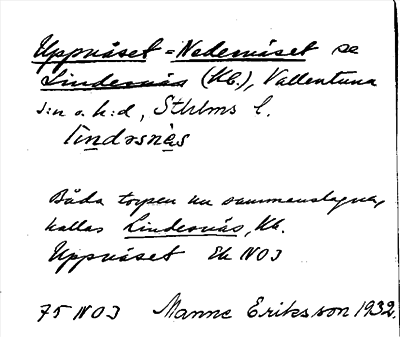 Uppnäset = Nedernäset se
Lindersnäs (Kb.), Vallentuna
s:n o. h:d, Sthlms l.
lìndəsnès
Båda torpen nu sammanslagna,
kallas Lindersnäs, Kb.
Uppnäset Ek NO3
75 NO3 Manne Eriksson 1932.